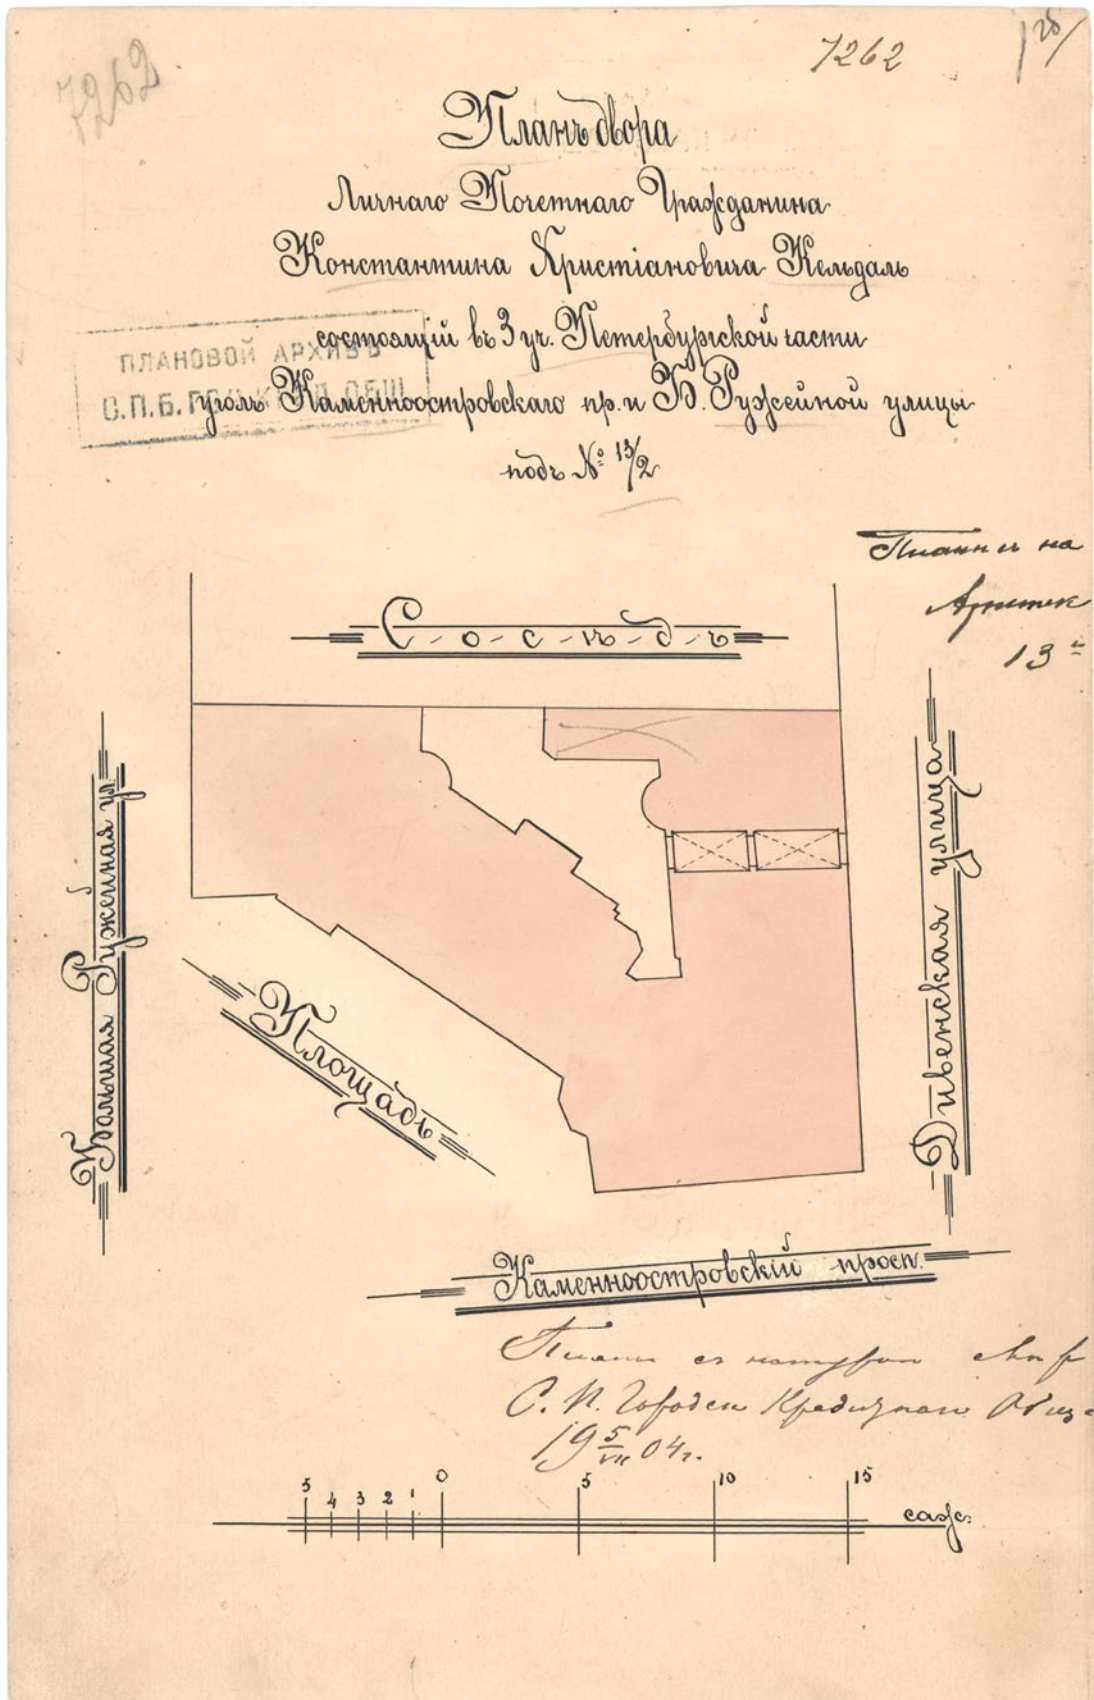 7262
7262
Планъ двора
Личнаго Почетнаго Гражданина
Константина Христіановича Кельдаль
состоящій въ 3 уч. Петербургской части
уголъ Каменноостровскаго пр. и Б. Ружейной улицы
подъ № 13/2
ПЛАНОВОЙ АРХИВЪ
С.П.Б. ГОР. КРЕД. ОБЩ.
на
13
Сосѣдъ
Большая Ружейная ул.
Площадь
Дивенская улица
Каменноостровскій просп.
съ натурою
С. П. Городск Кредитнаго
19 5/VII 04 г.
5 4 3 2 1 0 5 10 15
саж: